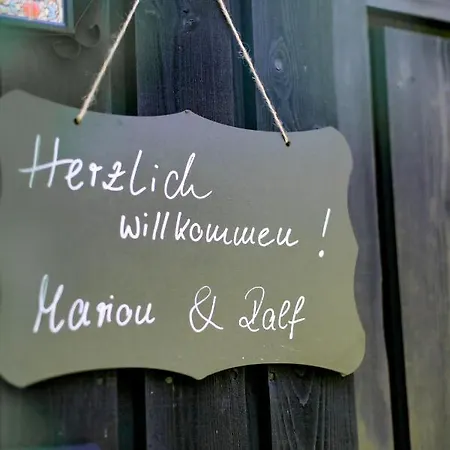 Herzlich
willkommen !
Marion & Ralf